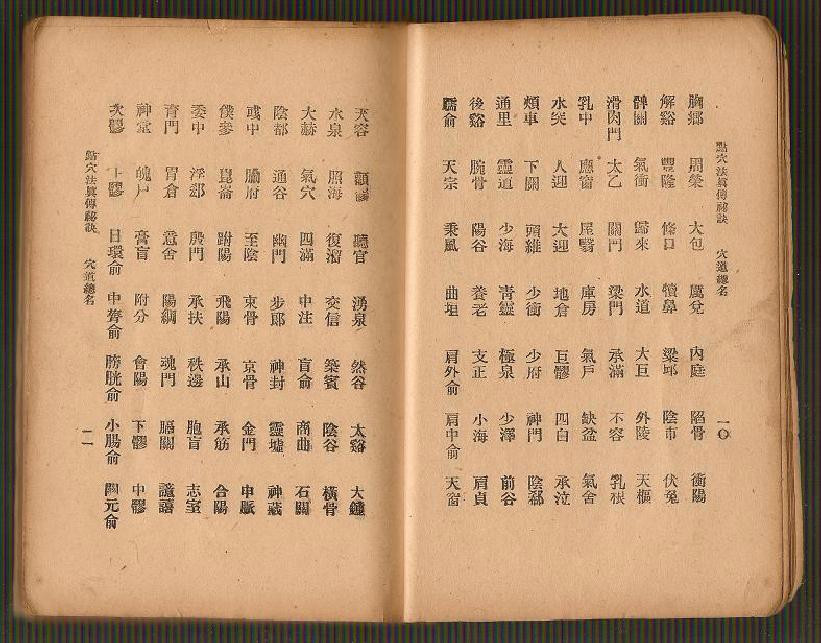 點穴法眞傳秘訣　穴道總名　一〇
胸鄉　周榮　大包　厲兌　內庭　陷骨　衝陽
解谿　豐隆　條口　犢鼻　梁邱　陰市　伏兔
髀關　氣衝　歸來　水道　大巨　外陵　天樞
滑肉門　太乙　關門　梁門　承滿　不容　乳根
乳中　應窗　屋翳　庫房　氣戶　缺盆　氣舍
水突　人迎　大迎　地倉　巨髎　四白　承泣
頰車　下關　頭維　少衝　少府　神門　陰郄
通里　靈道　少海　靑靈　極泉　少澤　前谷
後谿　腕骨　陽谷　養老　支正　小海　肩貞
臑俞　天宗　秉風　曲垣　肩外俞　肩中俞　天窗
天容　顴髎　聽官　湧泉　然谷　太谿　大鐘
水泉　照海　復溜　交信　築賓　陰谷　橫骨
大赫　氣穴　四滿　中注　肓俞　商曲　石關
陰都　通谷　幽門　步郎　神封　靈墟　神藏
彧中　腧府　至陰　束骨　京骨　金門　申脈
僕參　崑崙　跗陽　飛陽　承山　承筋　合陽
委中　浮郄　殷門　承扶　秩邊　胞肓　志室
肓門　胃倉　意舍　陽綱　魂門　膈關　譩譆
神堂　魄戶　膏肓　附分　會陽　下髎　中髎
次髎　上髎　白環俞　中膂俞　膀胱俞　小腸俞　關元俞
點穴法眞傳秘訣　穴道總名　一一